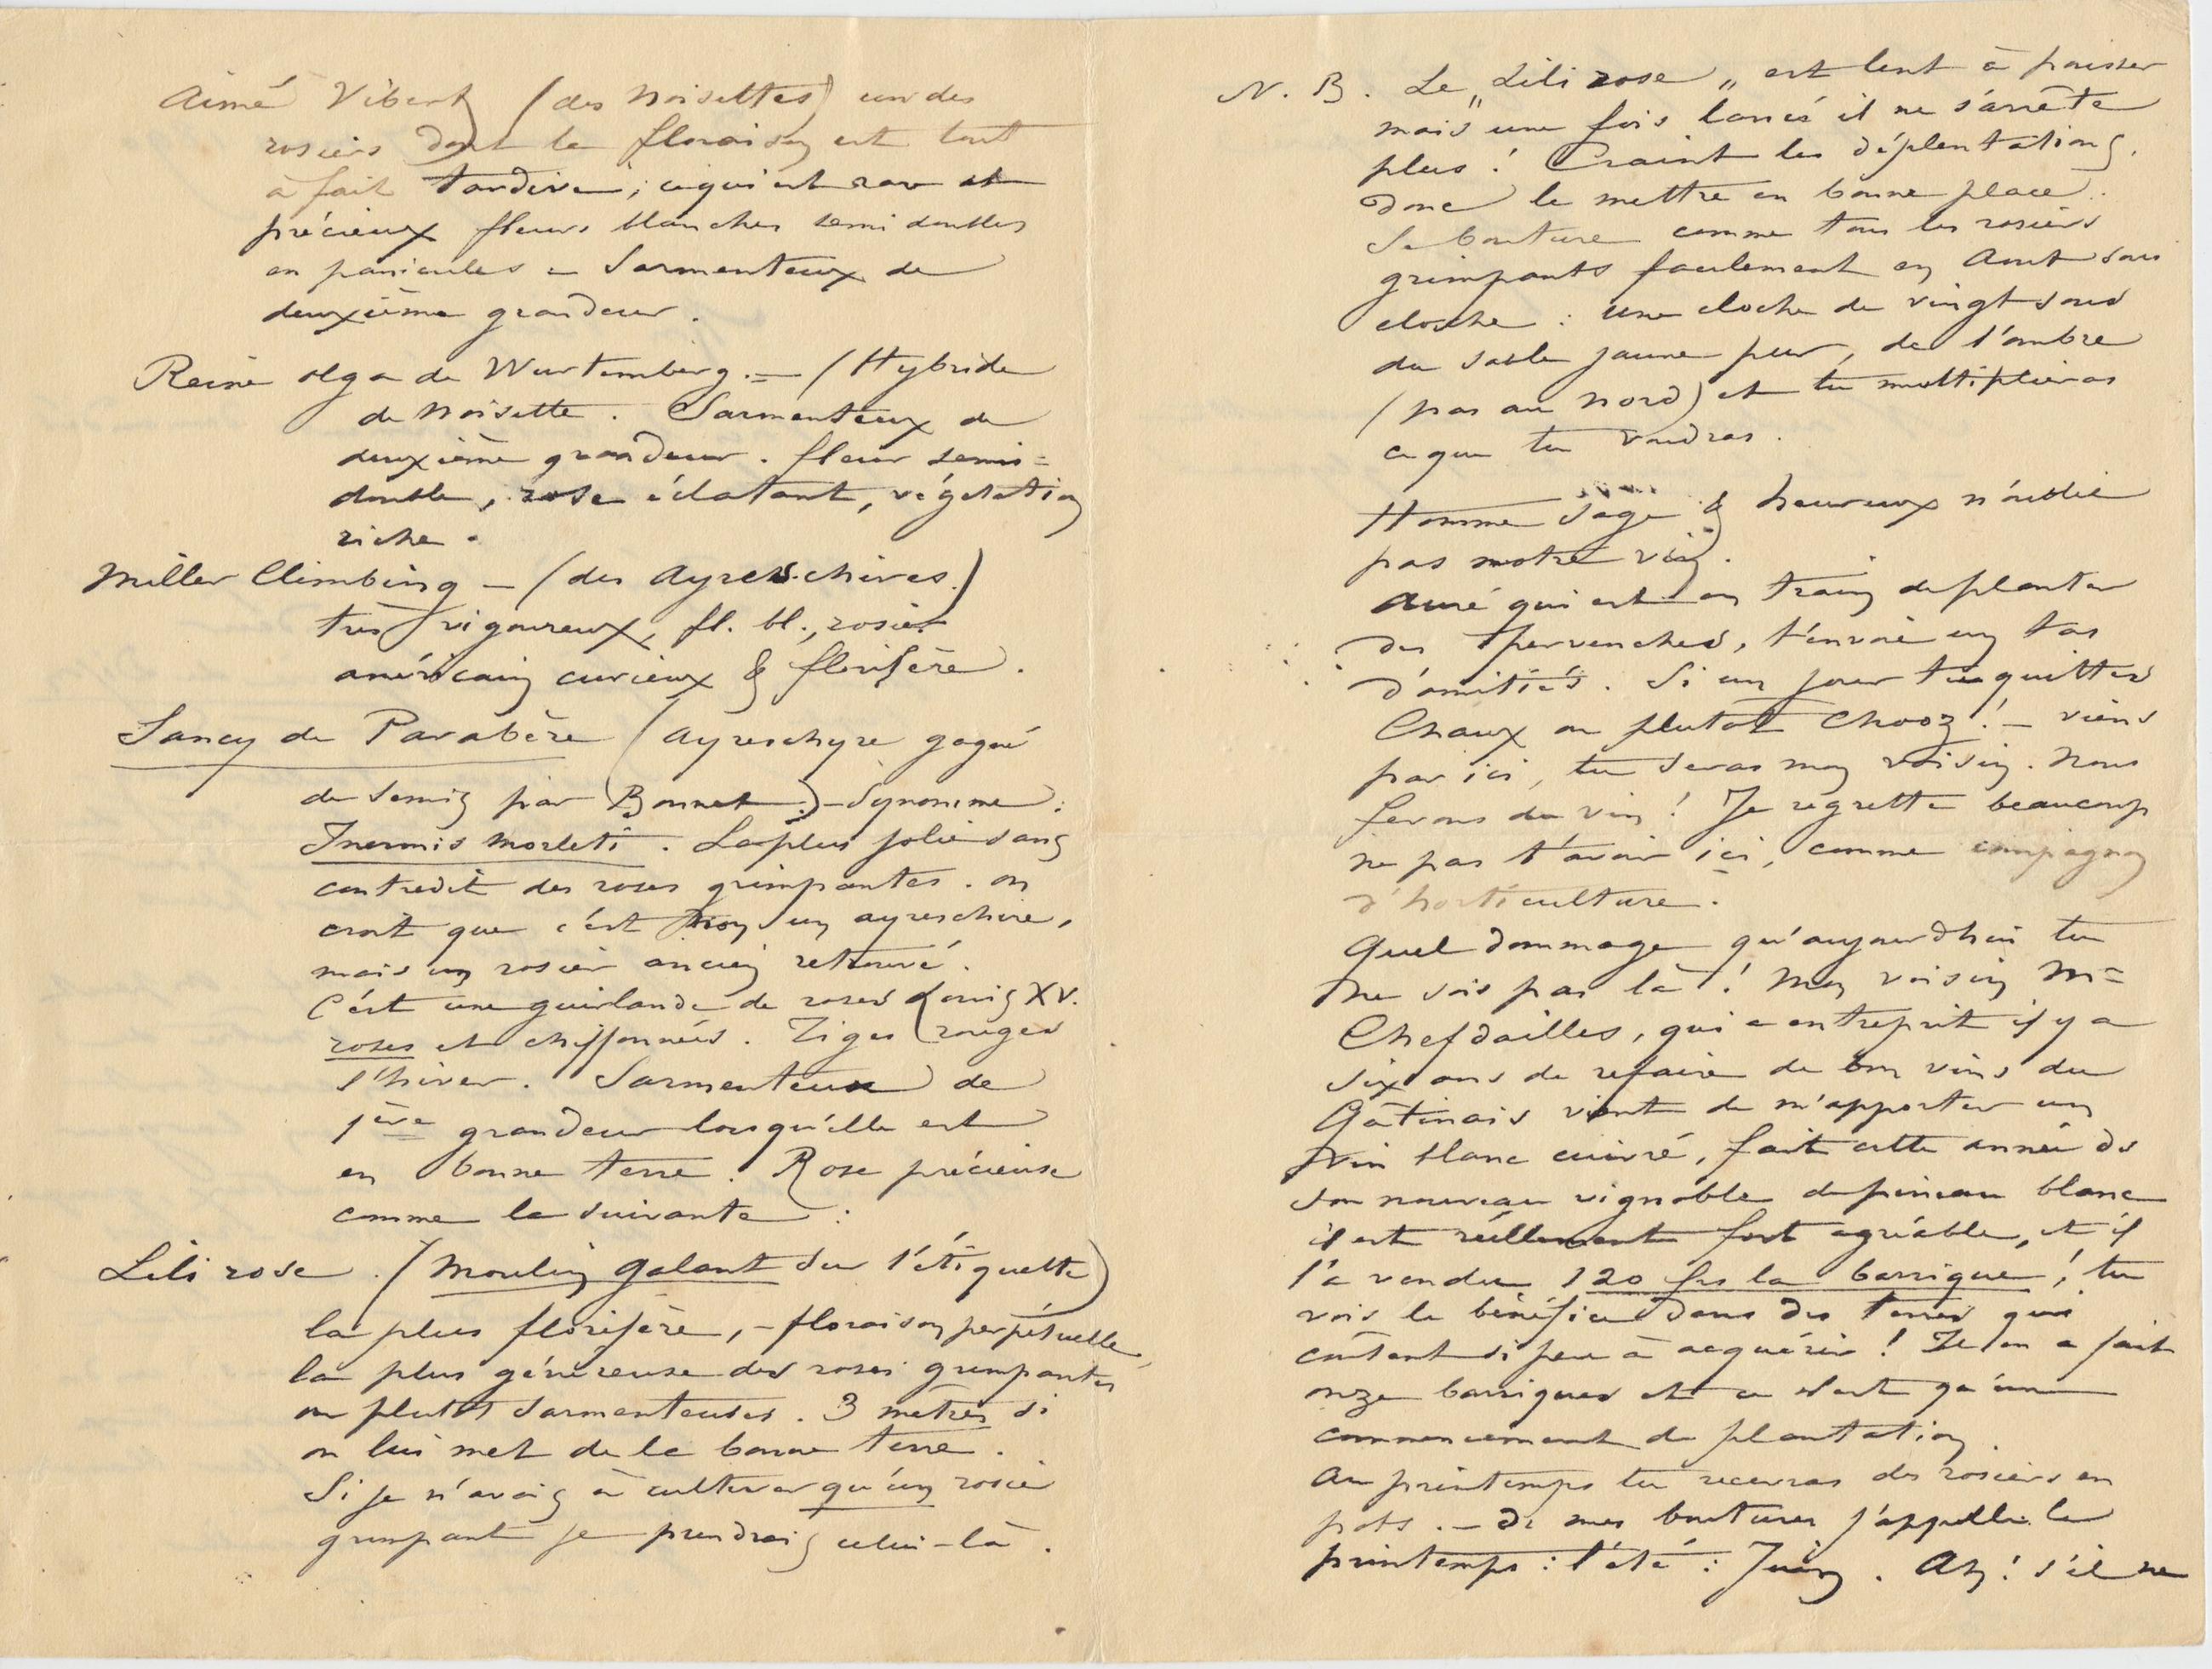 Aimé Vibert (des Noisettes) un des
rosiers dont la floraison est tout
à fait tardive ; ce qui est rare et
précieux fleurs blanches semi doubles
en panicules = Sarmenteux de
deuxième grandeur.
Reine Olga de Wurtemberg. = (Hybride
de Noisette. Sarmenteux de
deuxième grandeur. fleur semi=
double, rose éclatant, végétation
riche.
Miller Climbing – (des Ayres-chires.)
très vigoureux, fl. bl., rosier
américain curieux & florifère.
Sancy de Parabère (Ayreschyre gagné
de semis par Bonnet.) – Synonime :
Inermis Morleti. La plus jolie sans
contredit des roses grimpantes. on
croit que c'est non un ayreschire,
mais un rosier ancien retrouvé.
C'est une guirlande de roses Louis XV.
roses et chiffonnées. Tiges rouges
l'hiver. Sarmenteux de
1ère grandeur lorsqu'elle est
en bonne terre. Rose précieuse
comme la suivante :
Lili rose. (Moulin galant sur l'étiquette)
la plus florifère, – floraison perpétuelle,
la plus généreuse des roses grimpantes
ou plutôt sarmenteuses. 3 mètres si
on lui met de la bonne terre.
Si je n'avais à cultiver qu'un rosier
grimpant je prendrais celui-là.
N. B. Le „Lili rose„ est lent à pousser
mais une fois lancé il ne s'arrête
plus ! Craint les déplantations,
donc le mettre en bonne place.
Se bouture comme tous les rosiers
grimpants facilement en Aout sous
cloche : une cloche de vingt sous
du sable jaune pur, de l'ombre
(pas au nord) et tu multiplieras
ce que tu voudras.
Homme sage & heureux n'oublie
pas notre vin.
Auré qui est en train de planter
des pervenches, t'envoie un tas
d'amitiés. Si un jour tu quittes
Chaux ou plutot Chooz ! – viens
par ici, tu seras mon voisin. Nous
ferons du vin ! Je regrette beaucoup
ne pas t'avoir ici, comme compagnon
d'horticulture.
Quel dommage qu'aujourdhui tu
ne sois pas là ! Mon voisin M=
Chefdailles, qui a entreprit il y a
six ans de refaire de bon vins du
Gâtinais vient de m'apporter un
vin blanc cuivré, fait cette année de
son nouveau vignoble de pineau blanc
il est réellement fort agréable, et il
l'a vendu 120 frs la barrique ! tu
vois le bénéfice dans des terres qui
coûtent si peu à acquérir ! Il en a fait
onze barriques et ce n'est qu'un
commencement de plantation.
Au printemps tu recevras des rosiers en
pots. – de mes boutures j'appelle le
printemps : l'été : Juin. Ah ! s'il ne